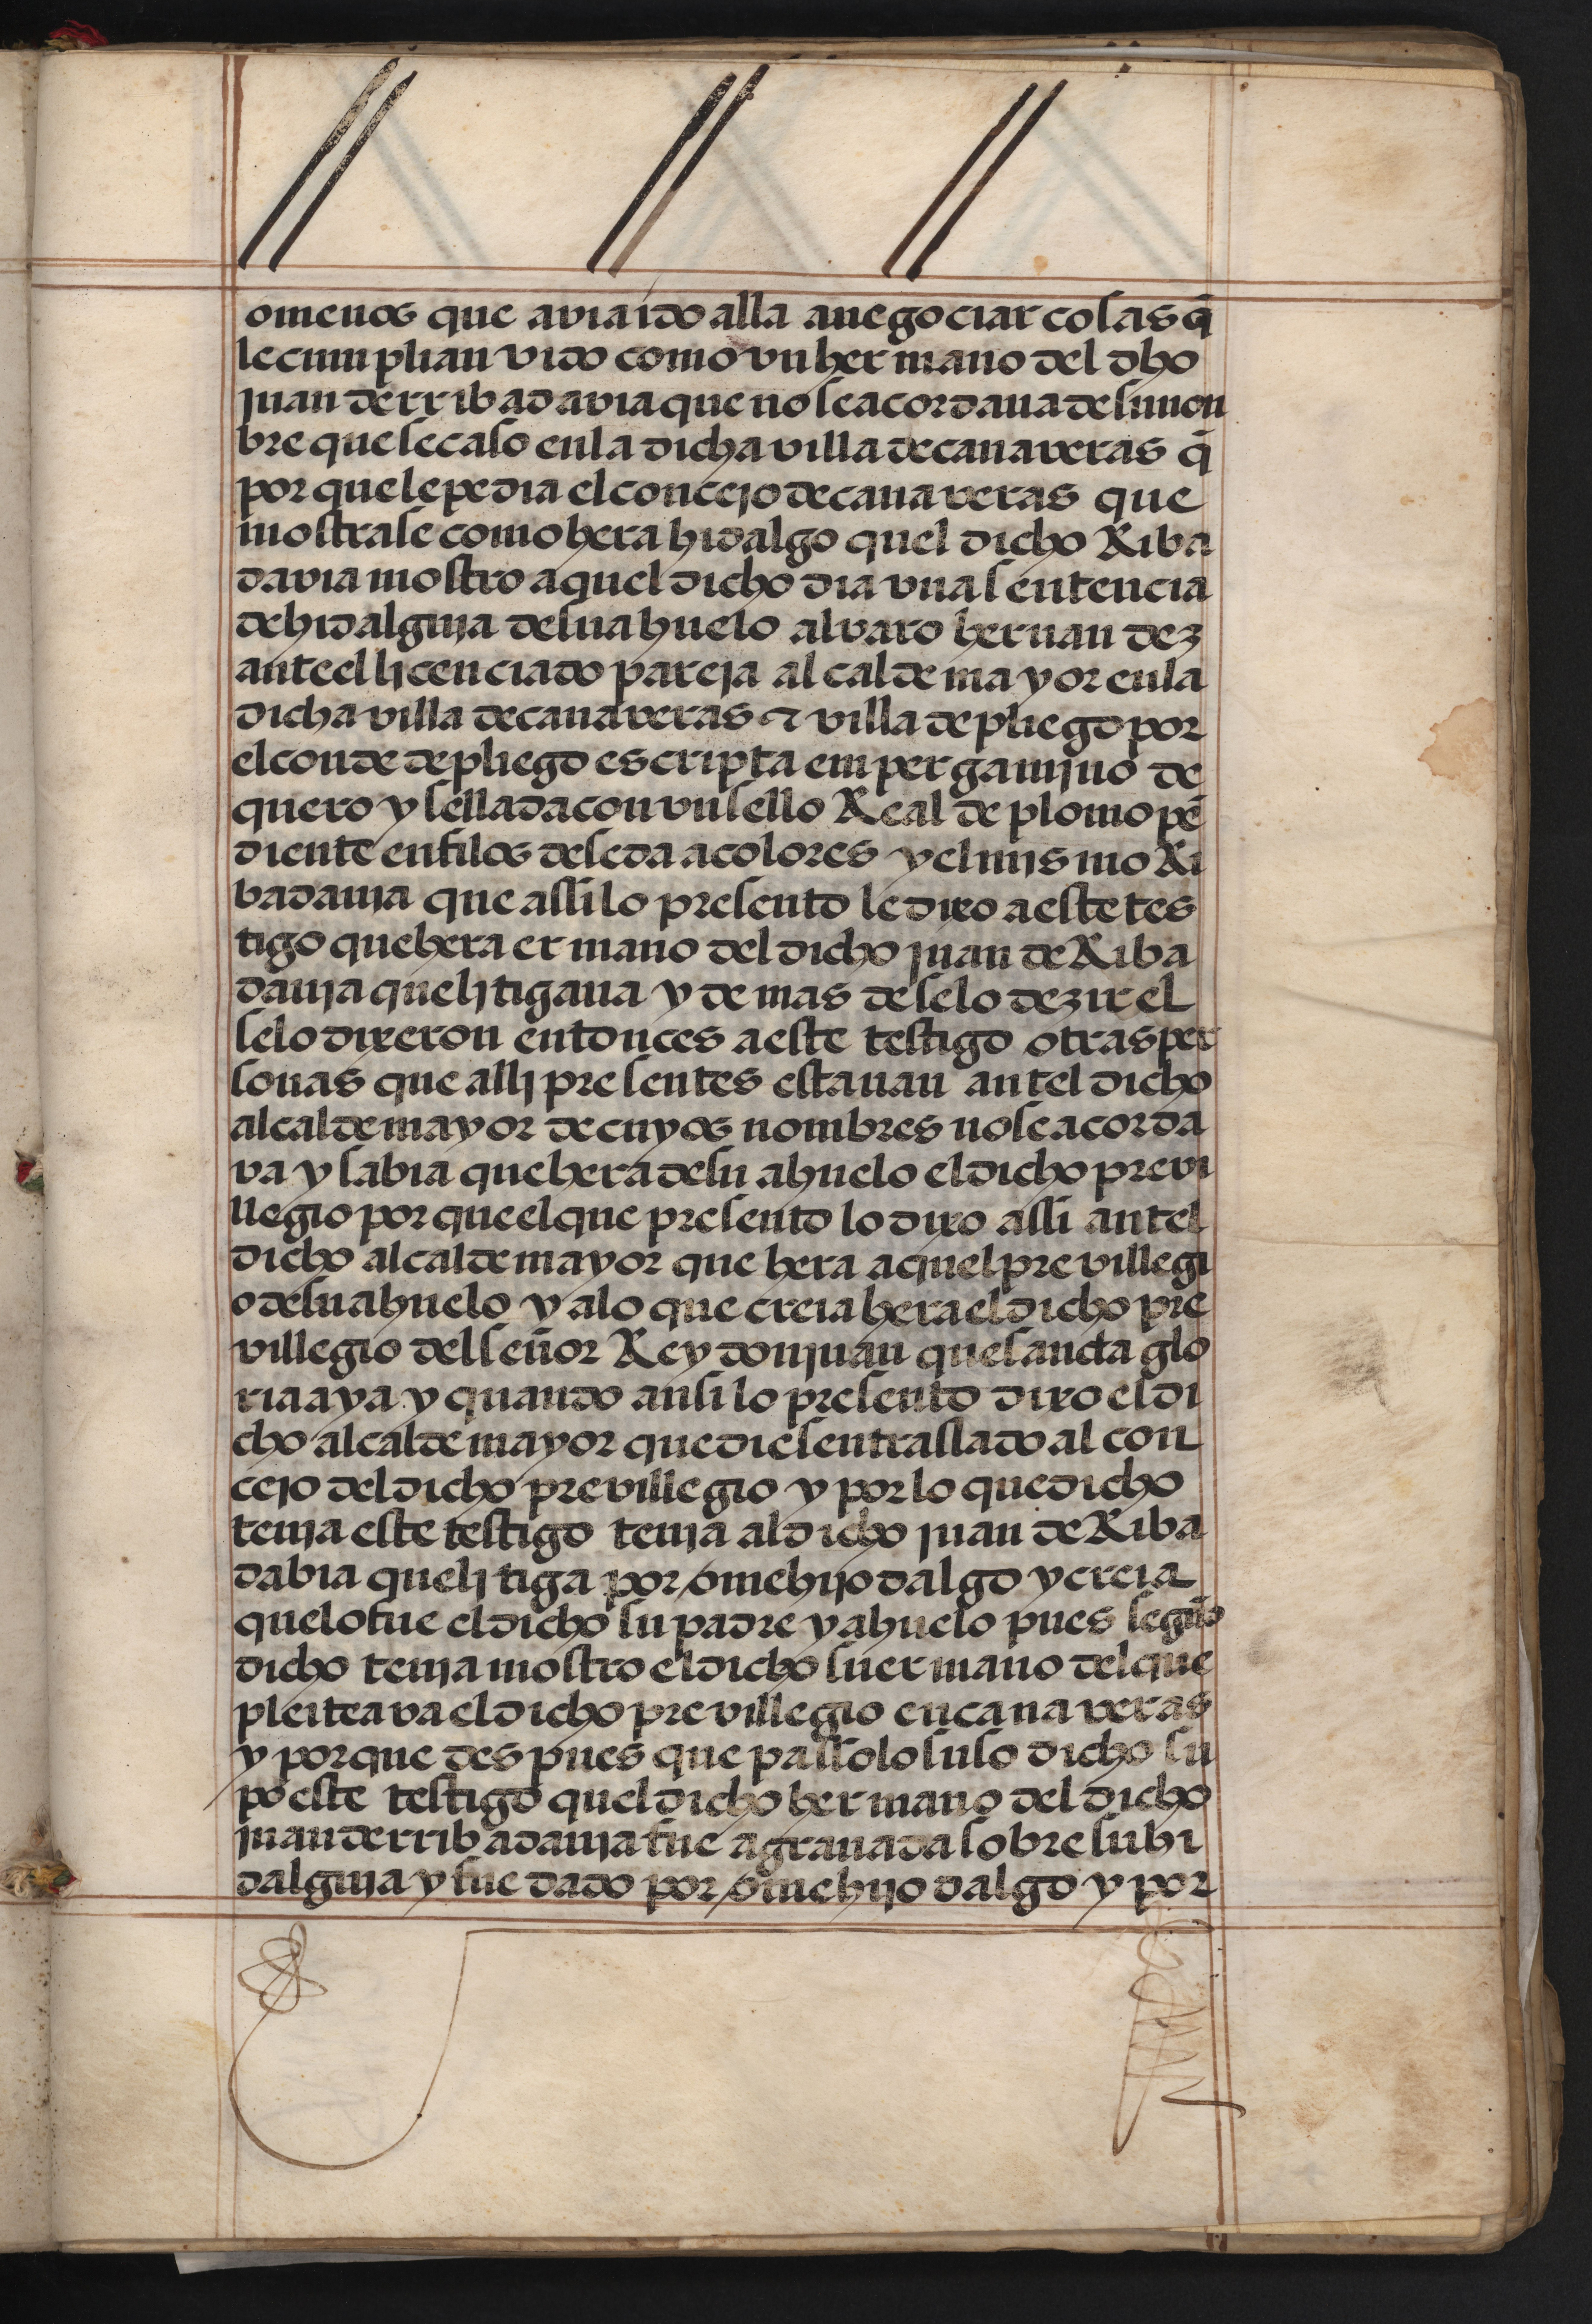 omenos que avia ido alla a negociar cosas q̄
le cumplian vido como vn hermano del dho
juan derribadavia que no se acordaua de su non
bre que se caso en la dicha villa de canaveras q̄
por que le pedia el concejo de canaveras que
mostrase como hera hidalgo quel dicho Riba
davia mostro aquel dicho dia vna sentencia
de hidalguja de su ahuelo alvaro hernandez
ante el licenciado pareja alcalde mayor en la
dicha villa de canaveras & villa de pliego por
el conde de pliego escripta em pergamjno de
quero y sellada con vn sello Real de plomo pē
diente en filos de seda a colores y el mismo Ri
badauja que assi lo presento le dixo a este tes
tigo que hera ermano del dicho juan de Riba
dauja que ljtigaua y de mas de selo dezir el
selo dixeron entonces a este testigo otras per
sonas que allj presentes estauan antel dicho
alcalde mayor de cuyos nombres no se acorda
va y sabia que hera de su ahuelo el dicho previ
llegio por que el que presento lo dixo assi antel
dicho alcalde mayor que hera aquel previllegi
o de su ahuelo y a lo que creia hera el dicho pre
villegio del señor Rey don juan que sancta glo
ria aya y quando ansi lo presento dixo el di
cho alcalde mayor que diesen traslado al con
cejo del dicho previllegio y por lo que dicho
tenja este testigo tenja al dicho juan de Riba
dabia que ljtiga por ome hijo dalgo y creia
que lo fue el dicho su padre y ahuelo pues segūd
dicho tenja mostro el dicho su ermano del que
pleiteava el dicho previllegio en canaveras
y porque despues que passo lo suso dicho su
po este testigo quel dicho hermano del dicho
juan derribadauja fue a granada sobre su hi
dalguja y fue dado por ome hijo dalgo y por